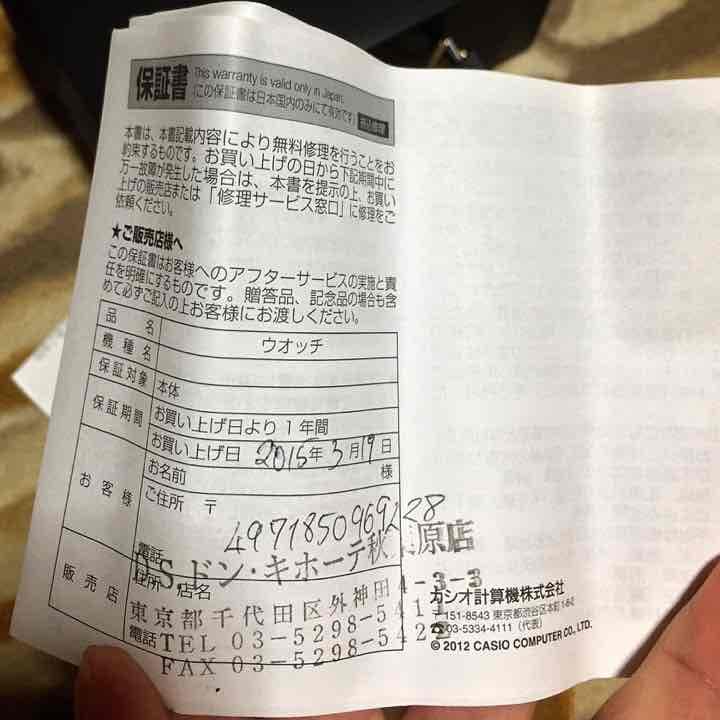 保証書
This warranty is valid only in Japan.
(この保証書は日本国内のみにて有効です)
持込修理
本書は、本書記載内容により無料修理を行うことをお
約束するものです。お買い上げの日から下記期間中に
万一故障が発生した場合は、本書を提示の上、お買い
上げの販売店または「修理サービス窓口」に修理をご
依頼ください。
★ご販売店様へ
この保証書はお客様へのアフターサービスの実施と責
任を明確にするものです。贈答品、記念品の場合も含
めて必ずご記入の上お客様にお渡しください。
品名 ウオッチ
機種名
保証対象 本体
保証期間 お買い上げ日より1年間
お買い上げ日 2015年3月19日
お客様 お名前 様
ご住所 〒
4971850969228
電話
販売店 住所・店名
DS.ドン・キホーテ秋 原店
東京都千代田区外神田4-3-3
電話 TEL 03-5298-5411
FAX 03-5298-542
カシオ計算機株式会社
〒151-8543 東京都渋谷区本町1-6-2
☎03-5334-4111(代表)
© 2012 CASIO COMPUTER CO., LTD.